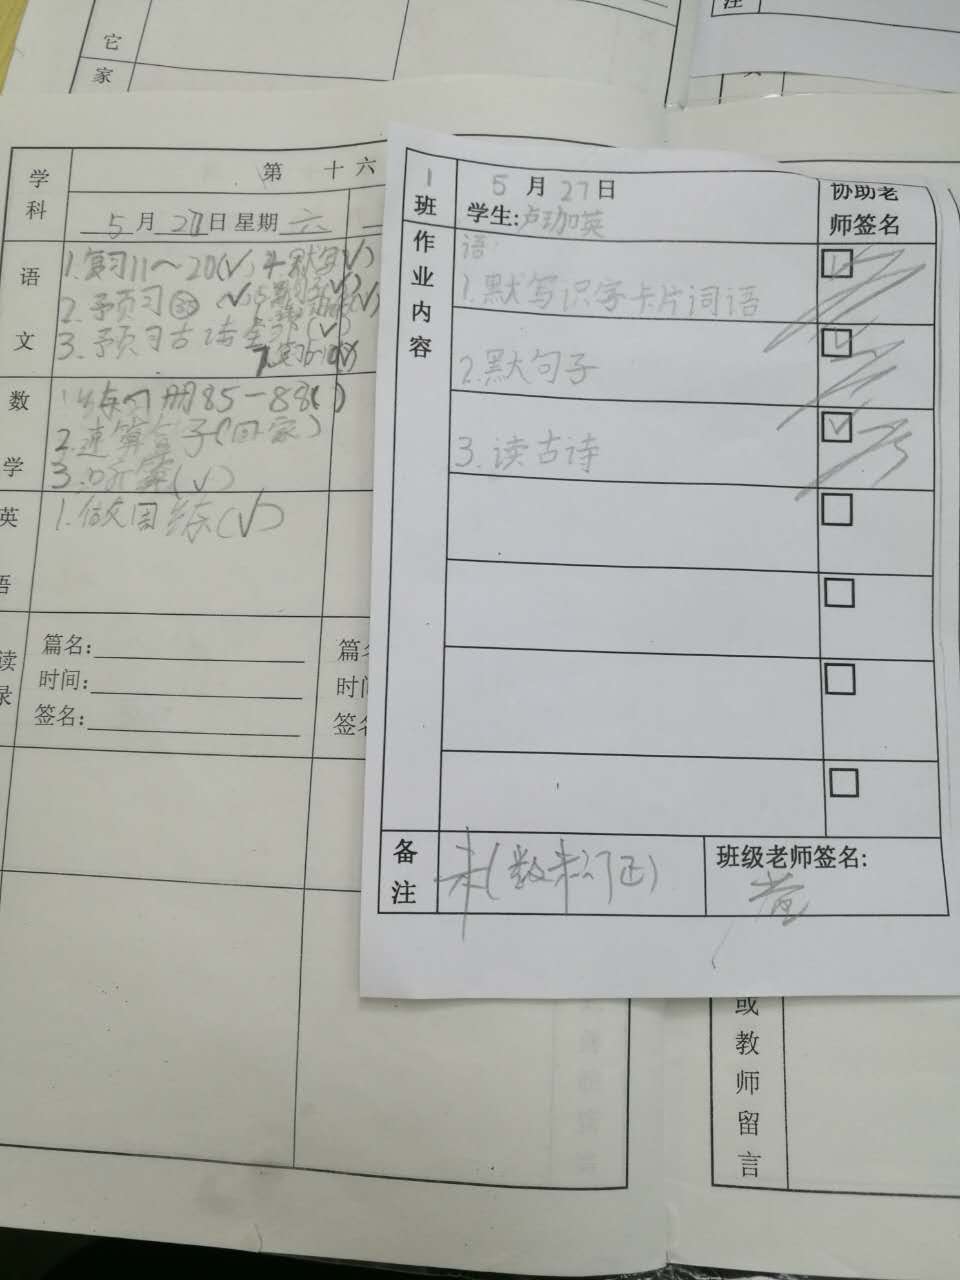 它
家
注
学科
第 十六
5月27日 星期六
语文
1.复习11～20(√)
2.预习
3.预习古诗
数学
1.练习册85-88( )
2.速算盒子(回家)
3.听算(√)
英语
1.做周练(√)
读
录
篇名:
时间:
签名:
篇名
时间
签名
1班
5月27日
学生:卢珈英
协助老师签名
作业内容
语:
1.默写识字卡片词语
2.默句子
3.读古诗
备注
未(数未订正)
班级老师签名:
或教师留言